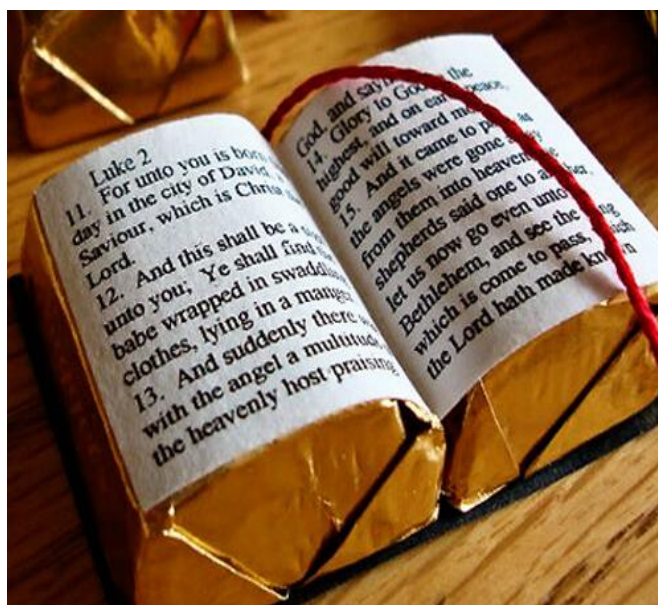 Luke 2
11. For unto you is born
day in the city of David,
Saviour, which is Christ
Lord.
12. And this shall be a
unto you; Ye shall find
babe wrapped in swaddling
clothes, lying in a manger
13. And suddenly there
with the angel a multitude
the heavenly host praising
God, and
14. Glory to God in the
highest, and on earth peace,
good will toward
15. And it came to pass as
the angels were gone away
from them into heaven the
shepherds said one to another,
let us now go even unto
Bethlehem, and see the
which is come to pass, which
the Lord hath made known